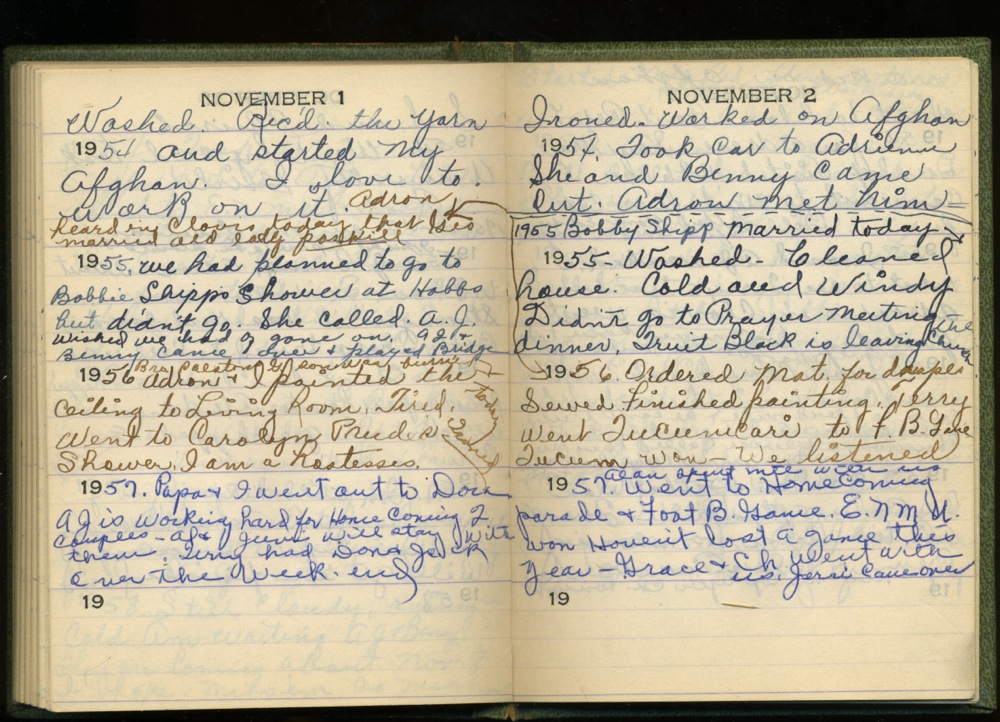 NOVEMBER 1
Washed. Rec'd. the yarn
1954 and started my
Afghan. I love to
work on it. Adron
heard in Clovis today that
married old lady
1955, we had planned to go to
Bobbie Shipps Shower at Hobbs
but didn't go. She called. A.J.
wished we had of gone on.
Benny came over & played Bridge
Bro.
1956 Adron & I painted the
ceiling to Living Room. Tired.
Went to Carolyn Prudes
Shower. I am a Hostesses.
today
1957. Papa & I went out to
A J is working hard for Home Coming 2
Couples - & June will stay with
them. Terry had Don & Jack
over the week-end
19
NOVEMBER 2
Ironed. Worked on Afghan
1954. Took car to Adrienne
She and Benny came
out. Adron met him -
1955 Bobby Shipp Married today
1955 - Washed - Cleaned
house. Cold and Windy
Didn't go to Prayer Meeting
dinner. Truit Black is leaving the Church
1956. Ordered Mat. for drapes
Sewed Finished painting. Terry
went Tucumcari to F. B. Game
Tucum won - We listened
Alan spent nite with us
1957. Went to Homecoming
parade & Foot B. Game. E.N.M.U.
won Haven't lost a game this
year - Grace & Ch. went with
us. Jerri came over
19